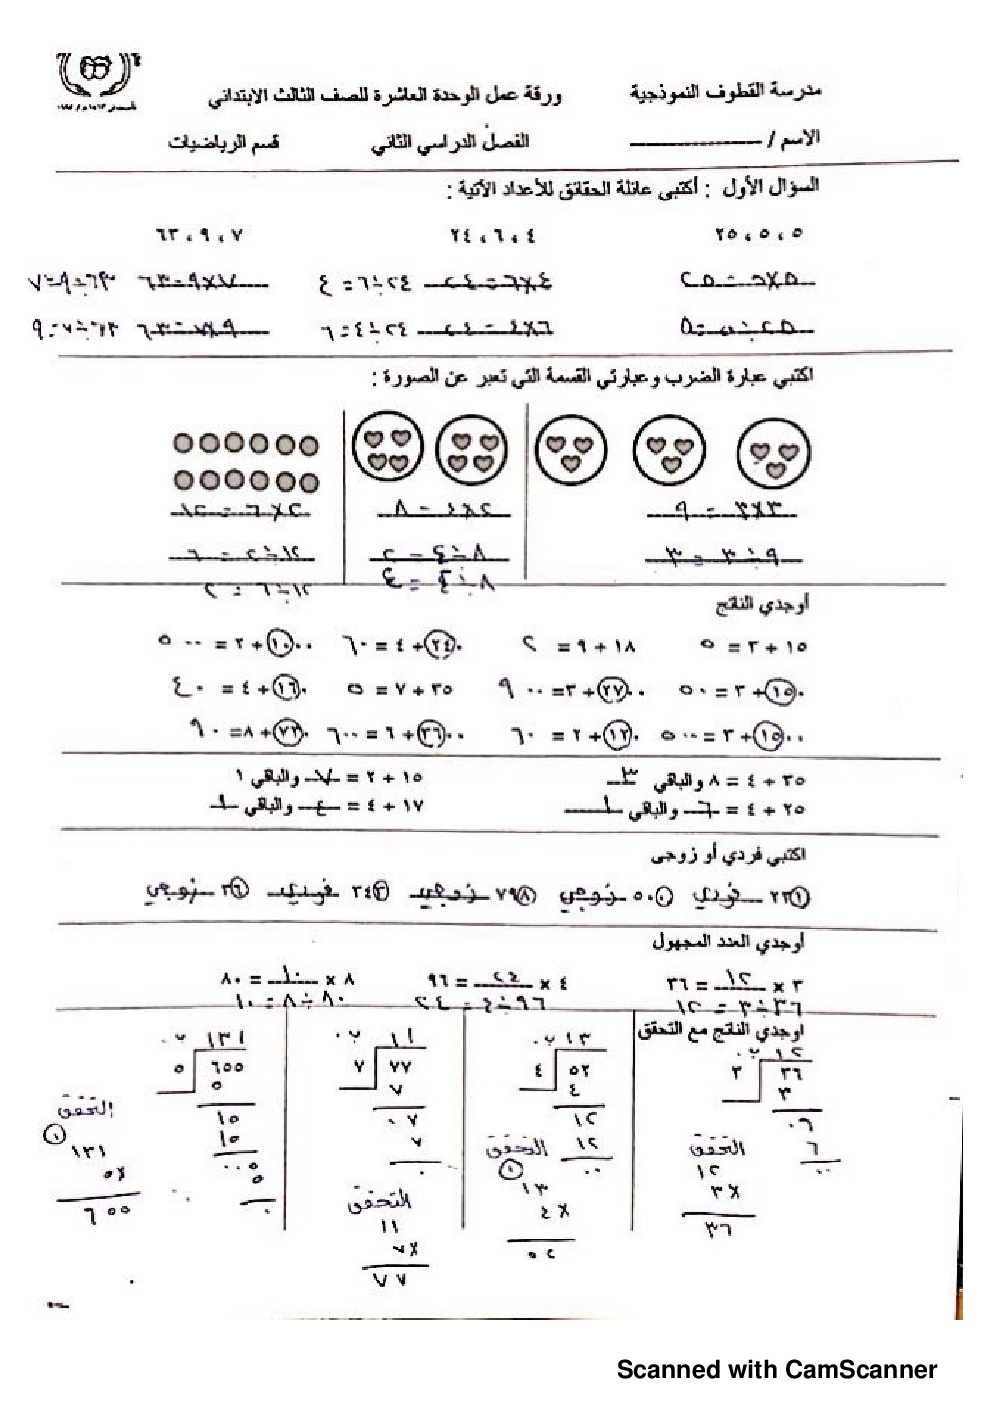 مدرسة القطوف النموذجية ورقة عمل الوحدة العاشرة للصف الثالث الابتدائي
الاسم / ــــــــــــ الفصل الدراسي الثاني قسم الرياضيات
السؤال الأول : أكتبي عائلة الحقائق للأعداد الآتية :
٥ ، ٥ ، ٢٥ ٤ ، ٦ ، ٢٤ ٧ ، ٩ ، ٦٣
٥×٥=٢٥ ٤×٦=٢٤ ٢٤÷٦=٤ ٧×٩=٦٣ ٦٣÷٩=٧
٢٥÷٥=٥ ٦×٤=٢٤ ٢٤÷٤=٦ ٩×٧=٦٣ ٦٣÷٧=٩
اكتبي عبارة الضرب وعبارتي القسمة التي تعبر عن الصورة :
٣×٣=٩ ٢×٤=٨ ٢×٦=١٢
٩÷٣=٣ ٨÷٤=٢ ١٢÷٢=٦
٨÷٢=٤ ١٢÷٦=٢
أوجدي الناتج
١٥ ÷ ٣ = ٥ ١٨ ÷ ٩ = ٢ ٢٤٠ ÷ ٤ = ٦٠ ١٠٠٠ ÷ ٢ = ٥٠٠
١٥٠ ÷ ٣ = ٥٠ ٢٧٠٠ ÷ ٣ = ٩٠٠ ٣٥ ÷ ٧ = ٥ ١٦٠ ÷ ٤ = ٤٠
١٥٠٠ ÷ ٣ = ٥٠٠ ١٢٠ ÷ ٢ = ٦٠ ٣٦٠٠ ÷ ٦ = ٦٠٠ ٧٢٠ ÷ ٨ = ٩٠
٣٥ ÷ ٤ = ٨ والباقي ٣ ١٥ ÷ ٢ = ٧ والباقي ١
٢٥ ÷ ٤ = ٦ والباقي ١ ١٧ ÷ ٤ = ٤ والباقي ١
اكتبي فردي أو زوجي
٢٣١ فردي ٥٠٠ زوجي ٧٩٨ زوجي ٢٤٣ فردي ٣٦ زوجي
أوجدي العدد المجهول
٣ × ١٢ = ٣٦ ٤ × ٢٤ = ٩٦ ٨ × ١٠ = ٨٠
٣٦÷٣=١٢ ٩٦÷٤=٢٤ ٨٠÷٨=١٠
اوجدي الناتج مع التحقق
١٢ ١٣ ١١ ١٣١
٣ ٣٦ ٤ ٥٢ ٧ ٧٧ ٥ ٦٥٥
٣ ٤ ٧ ٥
٠٦ ١٢ ٠٧ ١٥
٦ ١٢ ٧ ١٥
٠٠ ٠٠ ٠ ٠٠٥
٥
٠
التحقق التحقق التحقق التحقق
١٢ ١٣ ١١ ١٣١
×٣ ×٤ ×٧ ×٥
٣٦ ٥٢ ٧٧ ٦٥٥
Scanned with CamScanner